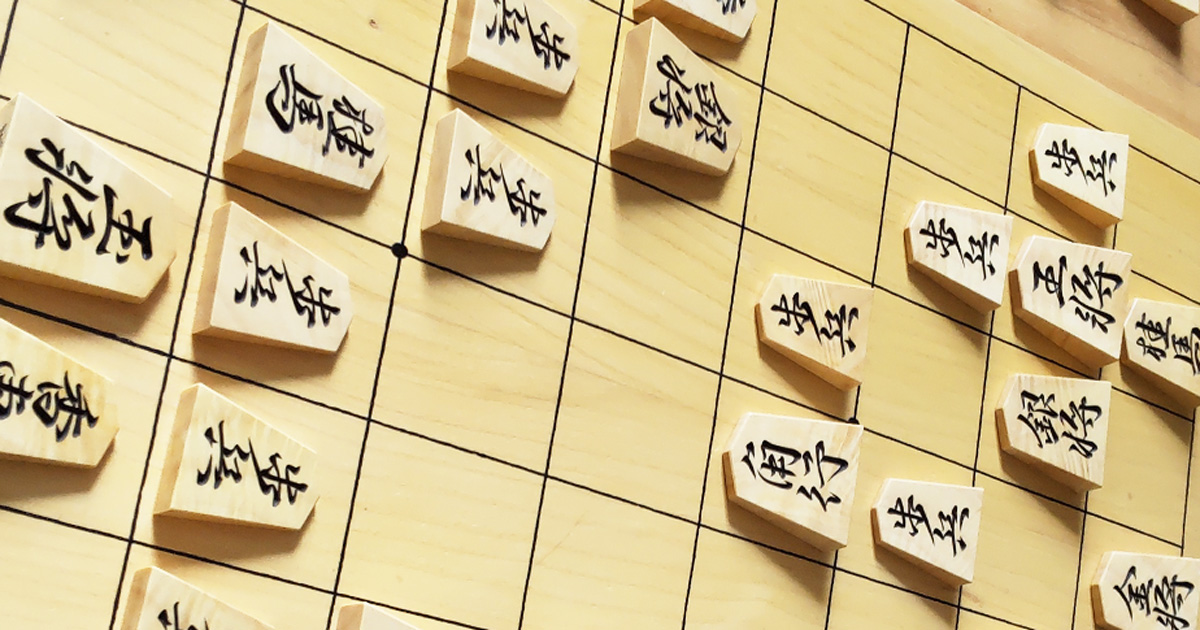 歩兵
銀将
桂馬
歩兵
玉将
歩兵
香車
歩兵
歩兵
歩兵
王将
桂馬
歩兵
銀将
角行
歩兵
金将